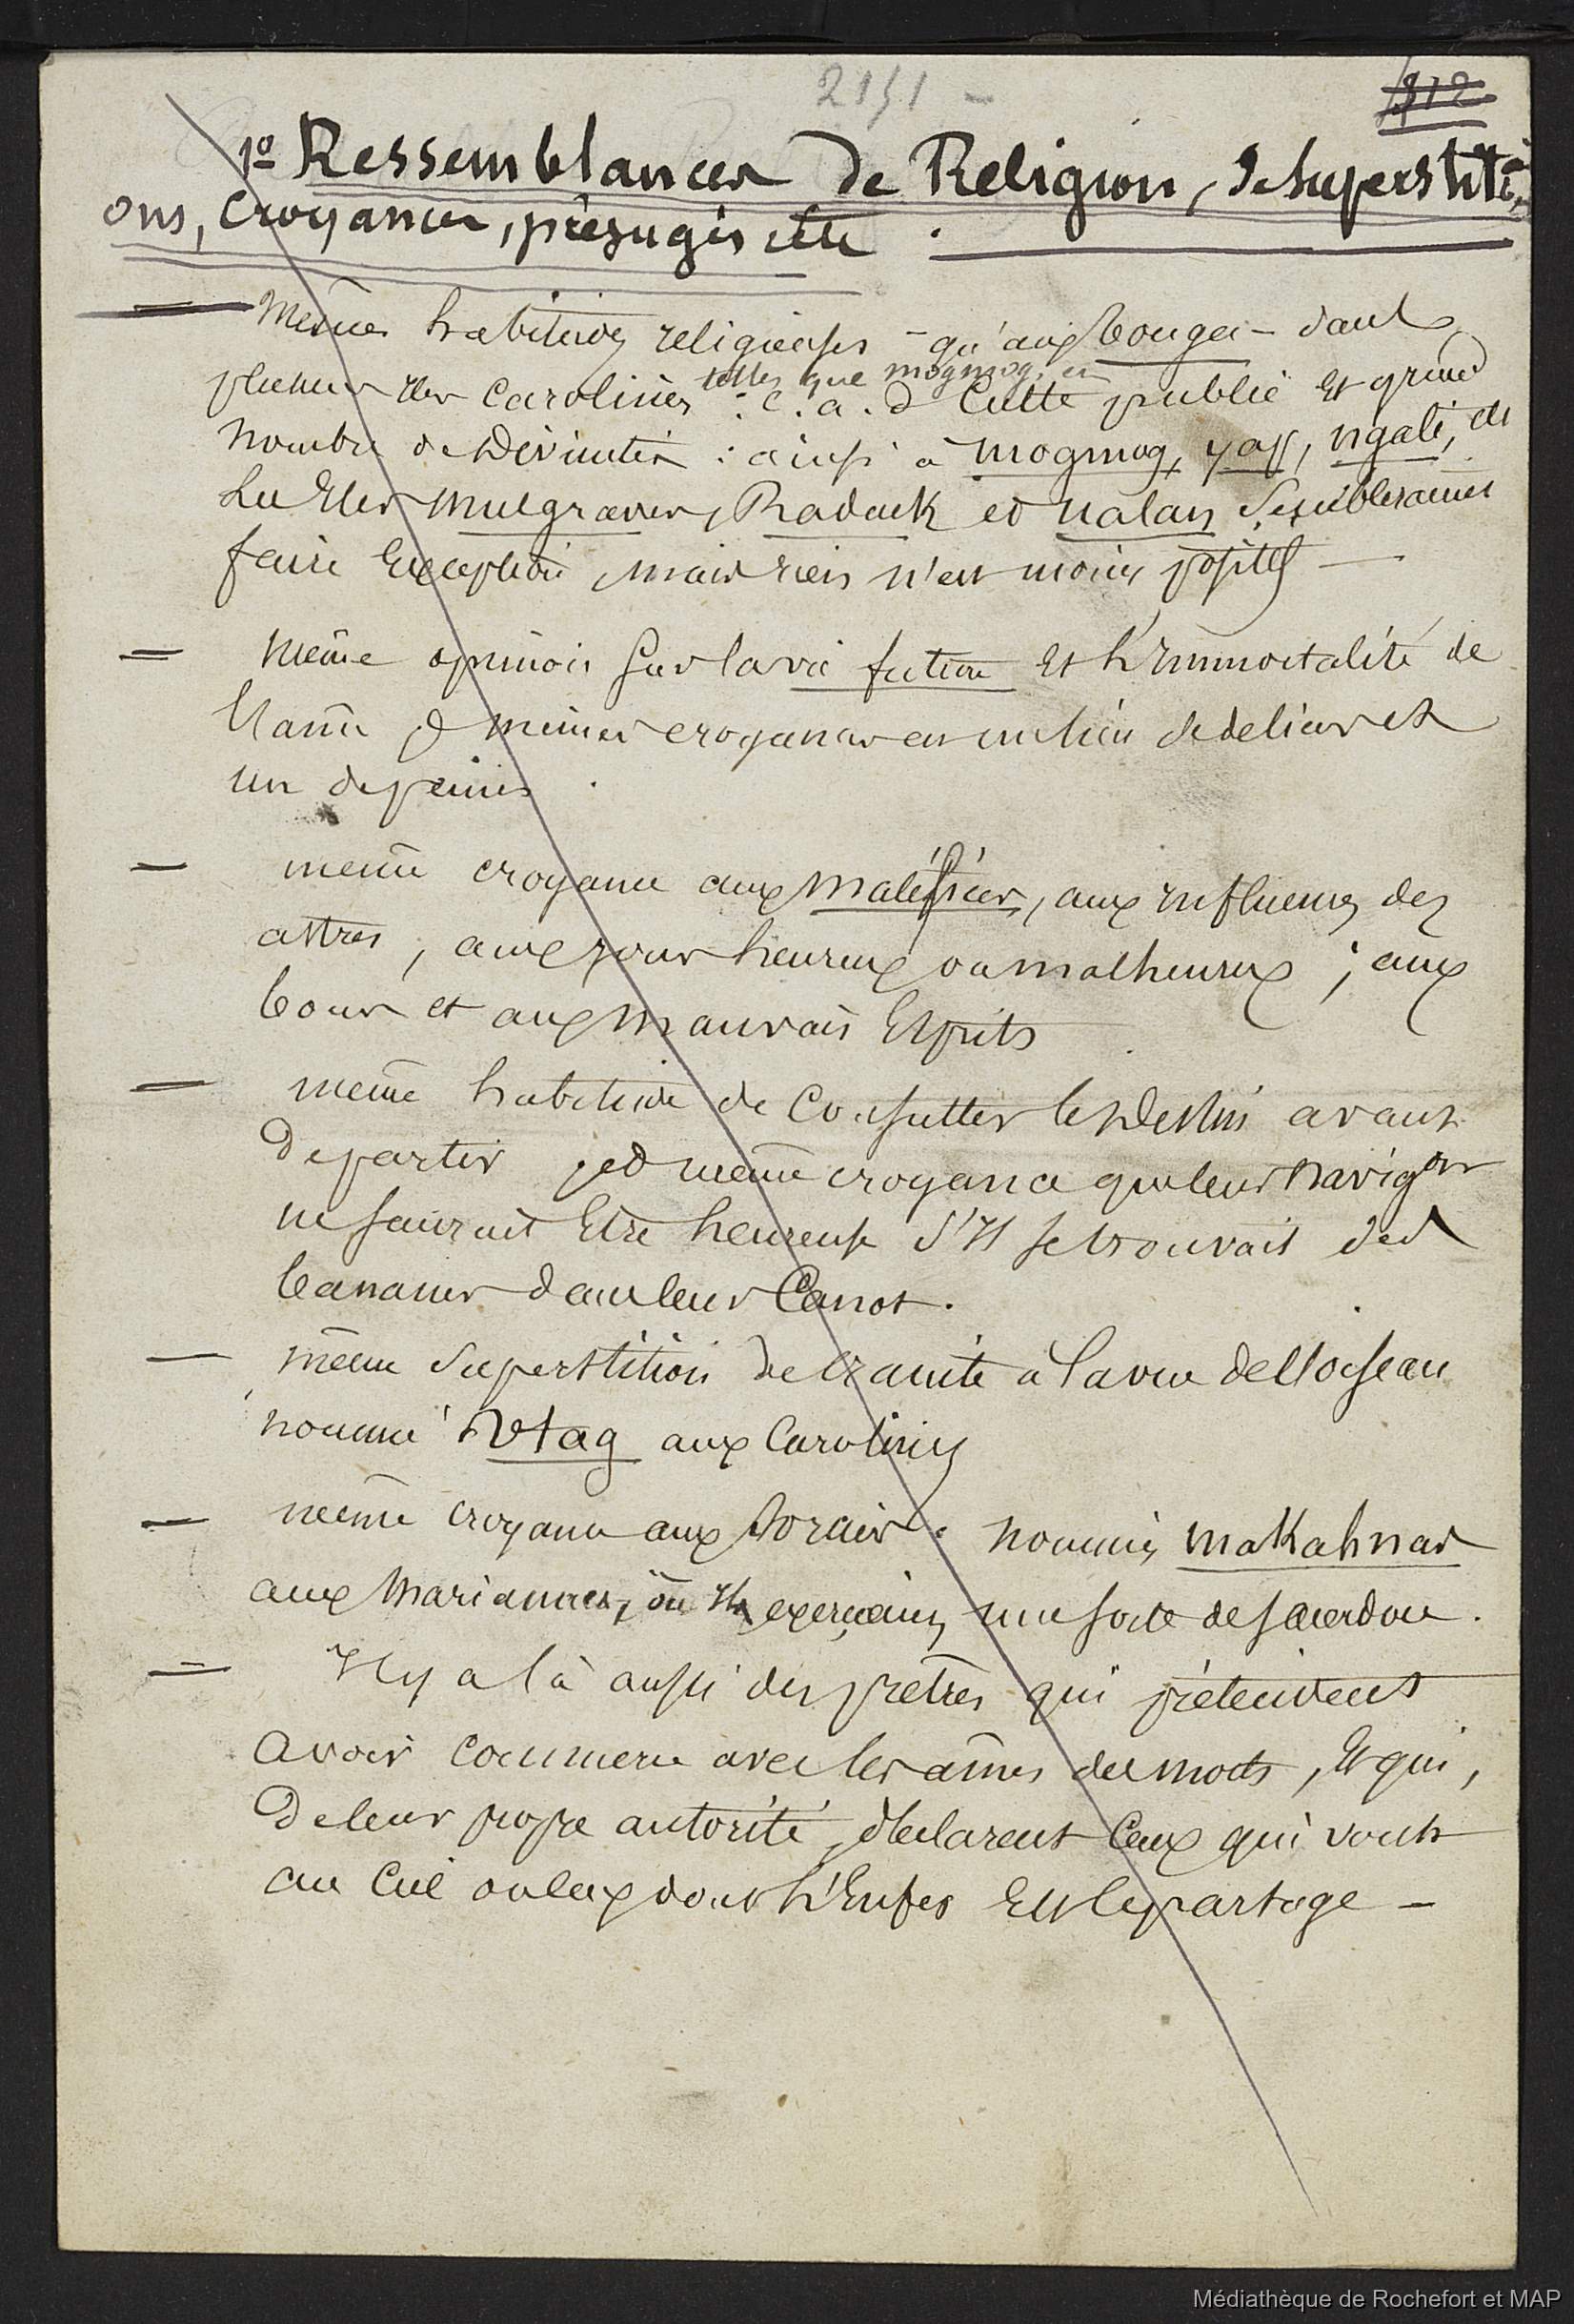 2151 -
1º Ressemblances de Religion, de Superstiti
ons, Croyances, préjugés etc.
= Mêmes habitudes religieuses - qu'aux tonga - dans
telles que mogmog, et
plusieurs Iles Carolines : c. a. d Culte public et grand
nombre de Divinités : ainsi à mogmog, yap, ngali, etc
Les Iles Mulgraves, Radack et ralan sembleraient
faire exception, mais rien n'est moins positif —
= Même opinion sur la vie future et l'immortalité de
l'ame & mêmes croyances en un lieu de delices et
un de peines.
— même croyance aux maléfices, aux influences des
astres, aux jours heureux ou malheureux ; aux
bons et aux mauvais Esprits
— même habitude de Consulter les Destins avant
de partir, et même croyance que leur navigon
ne saurait être heureuse s'il se trouvait des
bananes dans leur Canot.
— même Superstition de crainte à la vue de l'oiseau
nommé Utag aux Carolines
— même croyance aux Sorciers. nommés makahnas
aux Mariannes, où ils exerçaient une sorte de sacerdoce.
= Il y a là aussi des prêtres qui prétendent
avoir commerce avec les âmes des morts, et qui,
de leur propre autorité, déclarent Ceux qui vont
au Ciel ou ceux dont l'Enfer est le partage -
Médiathèque de Rochefort et MAP